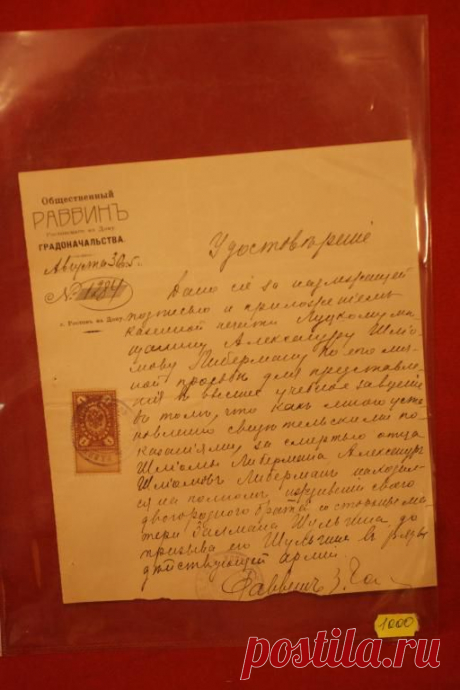 Общественный
РАВВИНЪ
Ростовскаго на Дону
ГРАДОНАЧАЛЬСТВА.
Августа 30
№ 1284
г. Ростов на Дону.
Удостовѣреніе
Дано сіе за надлежащей
подписью и приложеніемъ
казенной печати Луцкому мѣ
щанину Александру Шлё
мову Либерману по его лич
ной просьбѣ для представле
нія в высшее учебное заведеніе
въ томъ, что какъ мною уста
новлено свидѣтельскими по
казаніями, за смертью отца
Шлёмы Либермана Александръ
Шлёмовъ Либерманъ находил
ся на полномъ иждивеніи своего
двоюроднаго брата со стороны ма
тери Залмана Шульгина до
призыва его Шульгина в ряды
дѣйствующей арміи.
Раввинъ З.
1000
postila.ru